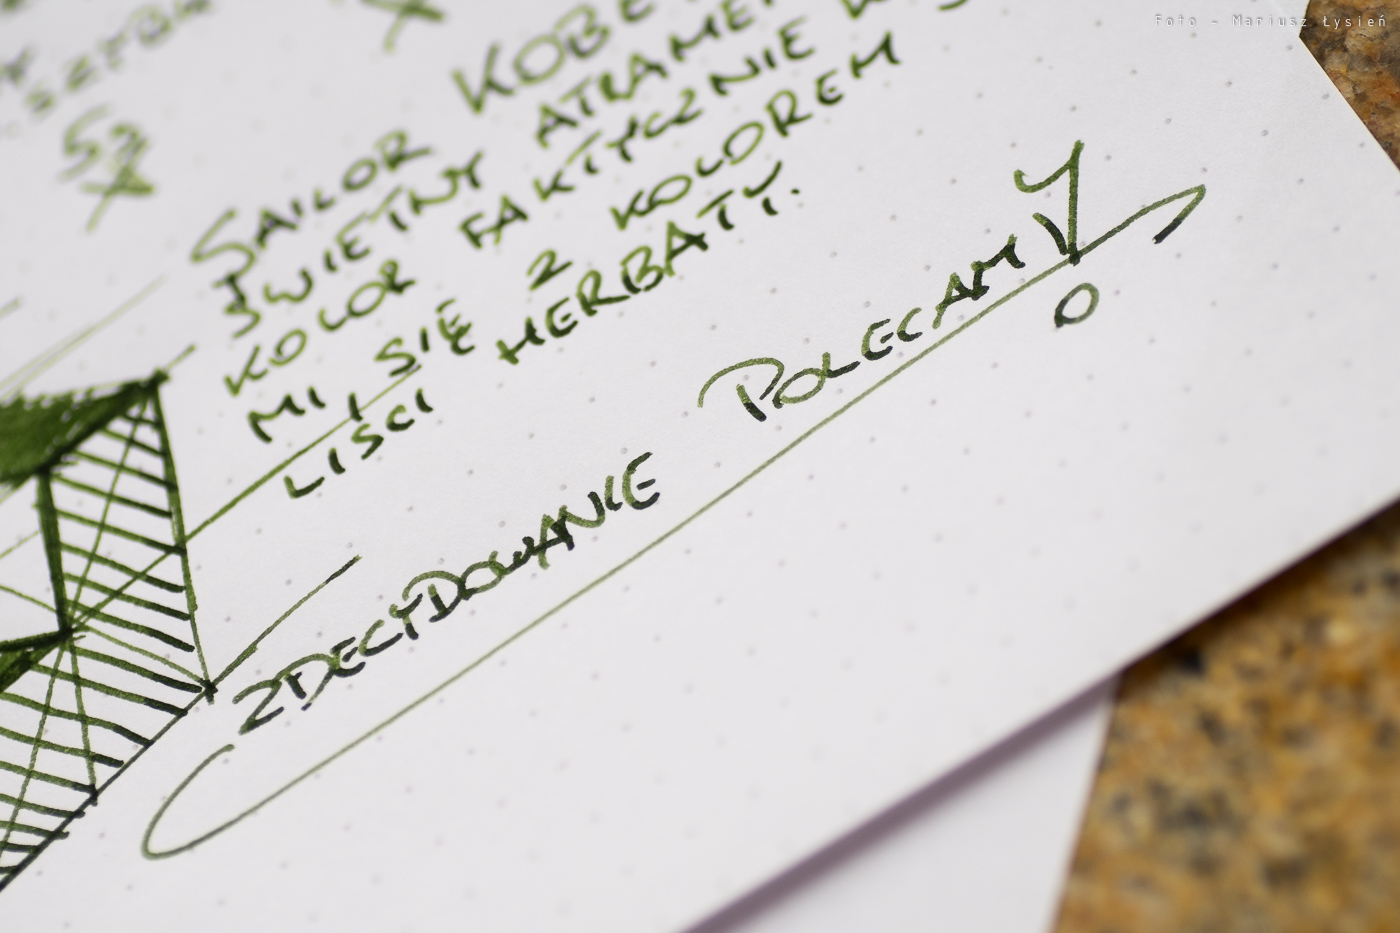 Foto - Mariusz Łysień
5s
SAILOR KOBE
ŚWIETNY ATRAMEN
KOLOR FAKTYCZNIE
MI SIĘ Z KOLOREM
LIŚCI HERBATY.
ZDECYDOWANIE POLECAM!